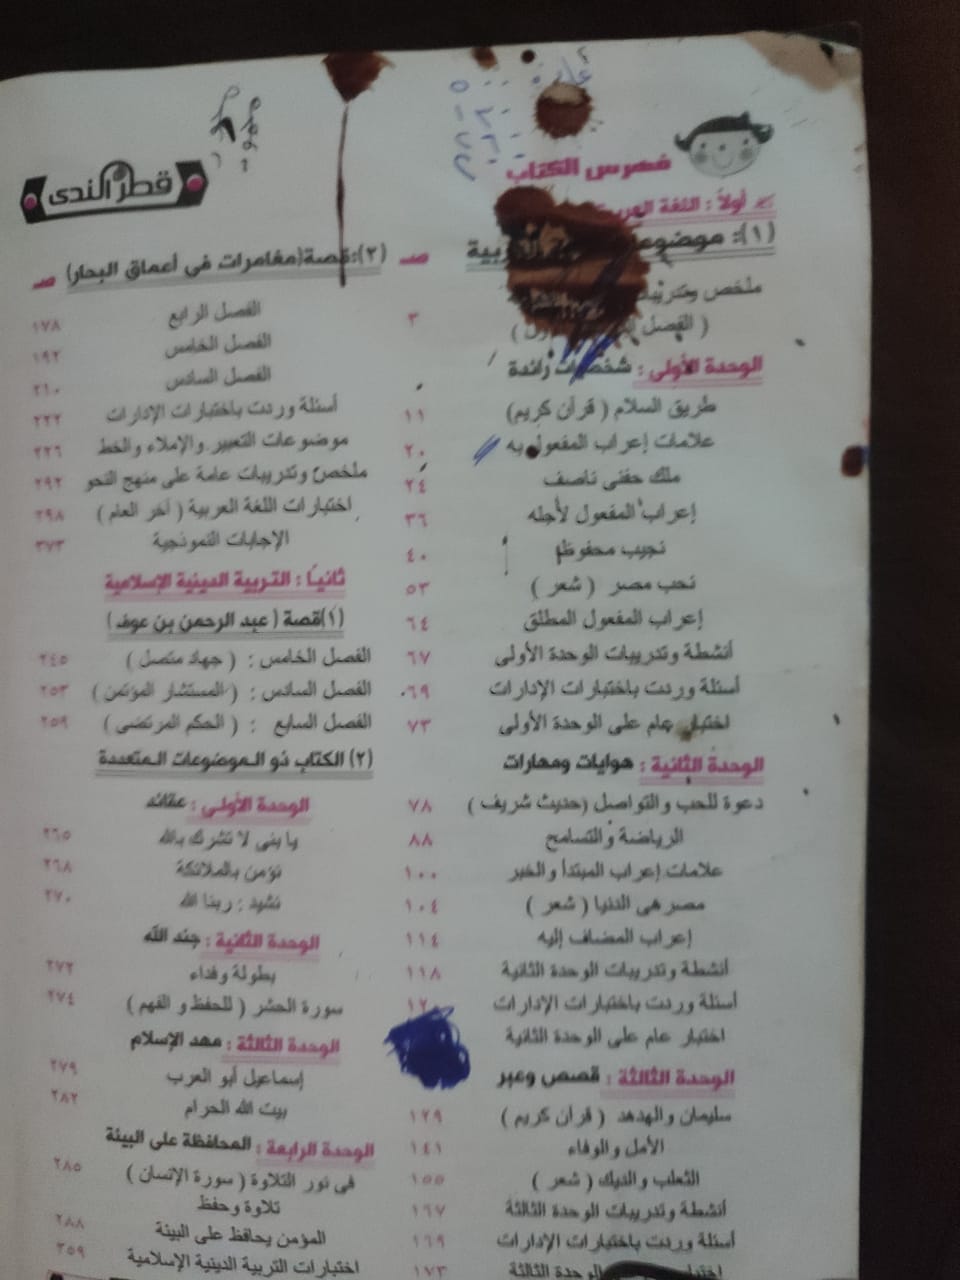 فهرس الكتاب
أولاً : اللغة العربية
(١): موضوعات العربية
صـ
ملخص وتدريبات
( الفصل الأول )
٣
الوحدة الأولى : شخصيات رائدة
طريق السلام ( قرآن كريم) ١١
علامات إعراب المفعول به ٢٠
ملك حفنى ناصف ٢٤
إعراب المفعول لأجله ٣٦
نجيب محفوظ ٤٠
نحب مصر ( شعر ) ٥٣
إعراب المفعول المطلق ٦٤
أنشطة وتدريبات الوحدة الأولى ٦٧
أسئلة وردت باختبارات الإدارات ٦٩
اختبار عام على الوحدة الأولى ٧٣
الوحدة الثانية : هوايات ومهارات
دعوة للحب والتواصل (حديث شريف ) ٧٨
الرياضة والتسامح ٨٨
علامات إعراب المبتدأ والخبر ١٠٠
مصر هى الدنيا ( شعر ) ١٠٤
إعراب المضاف إليه ١١٤
أنشطة وتدريبات الوحدة الثانية ١١٨
أسئلة وردت باختبارات الإدارات
اختبار عام على الوحدة الثانية
الوحدة الثالثة : قصص وعبر
سليمان والهدهد ( قرآن كريم ) ١٢٩
الأمل والوفاء ١٤١
الثعلب والديك ( شعر ) ١٥٥
أنشطة وتدريبات الوحدة الثالثة ١٦٧
أسئلة وردت باختبارات الإدارات ١٦٩
اختبار الوحدة الثالثة ١٧٣
قطر الندى
(٢):قصة(مغامرات فى أعماق البحار) صـ
الفصل الرابع ١٧٨
الفصل الخامس ١٩٢
الفصل السادس ٢١٠
أسئلة وردت باختبارات الإدارات ٢٢٢
موضوعات التعبير والإملاء والخط ٢٢٦
ملخص وتدريبات عامة على منهج النحو ٢٩٢
اختبارات اللغة العربية ( آخر العام ) ٢٩٨
الإجابات النموذجية ٣٧٣
ثانيًا : التربية الدينية الإسلامية
(١)قصة ( عبد الرحمن بن عوف )
الفصل الخامس : ( جهاد متصل ) ٢٤٥
الفصل السادس : ( المستشار المؤتمن ) ٢٥٣
الفصل السابع : ( الحكم المرتضى ) ٢٥٩
(٢) الكتاب ذو الموضوعات المتعددة
الوحدة الأولى : عقائد
يا بنى لا تشرك بالله ٢٦٥
نؤمن بالملائكة ٢٦٨
نشيد : ربنا الله ٢٧٠
الوحدة الثانية : جند الله
بطولة وفداء ٢٧٢
سورة الحشر ( للحفظ و الفهم ) ٢٧٤
الوحدة الثالثة : مهد الإسلام
إسماعيل أبو العرب ٢٧٩
بيت الله الحرام ٢٨٢
الوحدة الرابعة : المحافظة على البيئة
فى نور التلاوة ( سورة الإنسان ) ٢٨٥
تلاوة وحفظ
المؤمن يحافظ على البيئة ٢٨٨
اختبارات التربية الدينية الإسلامية ٣٥٩